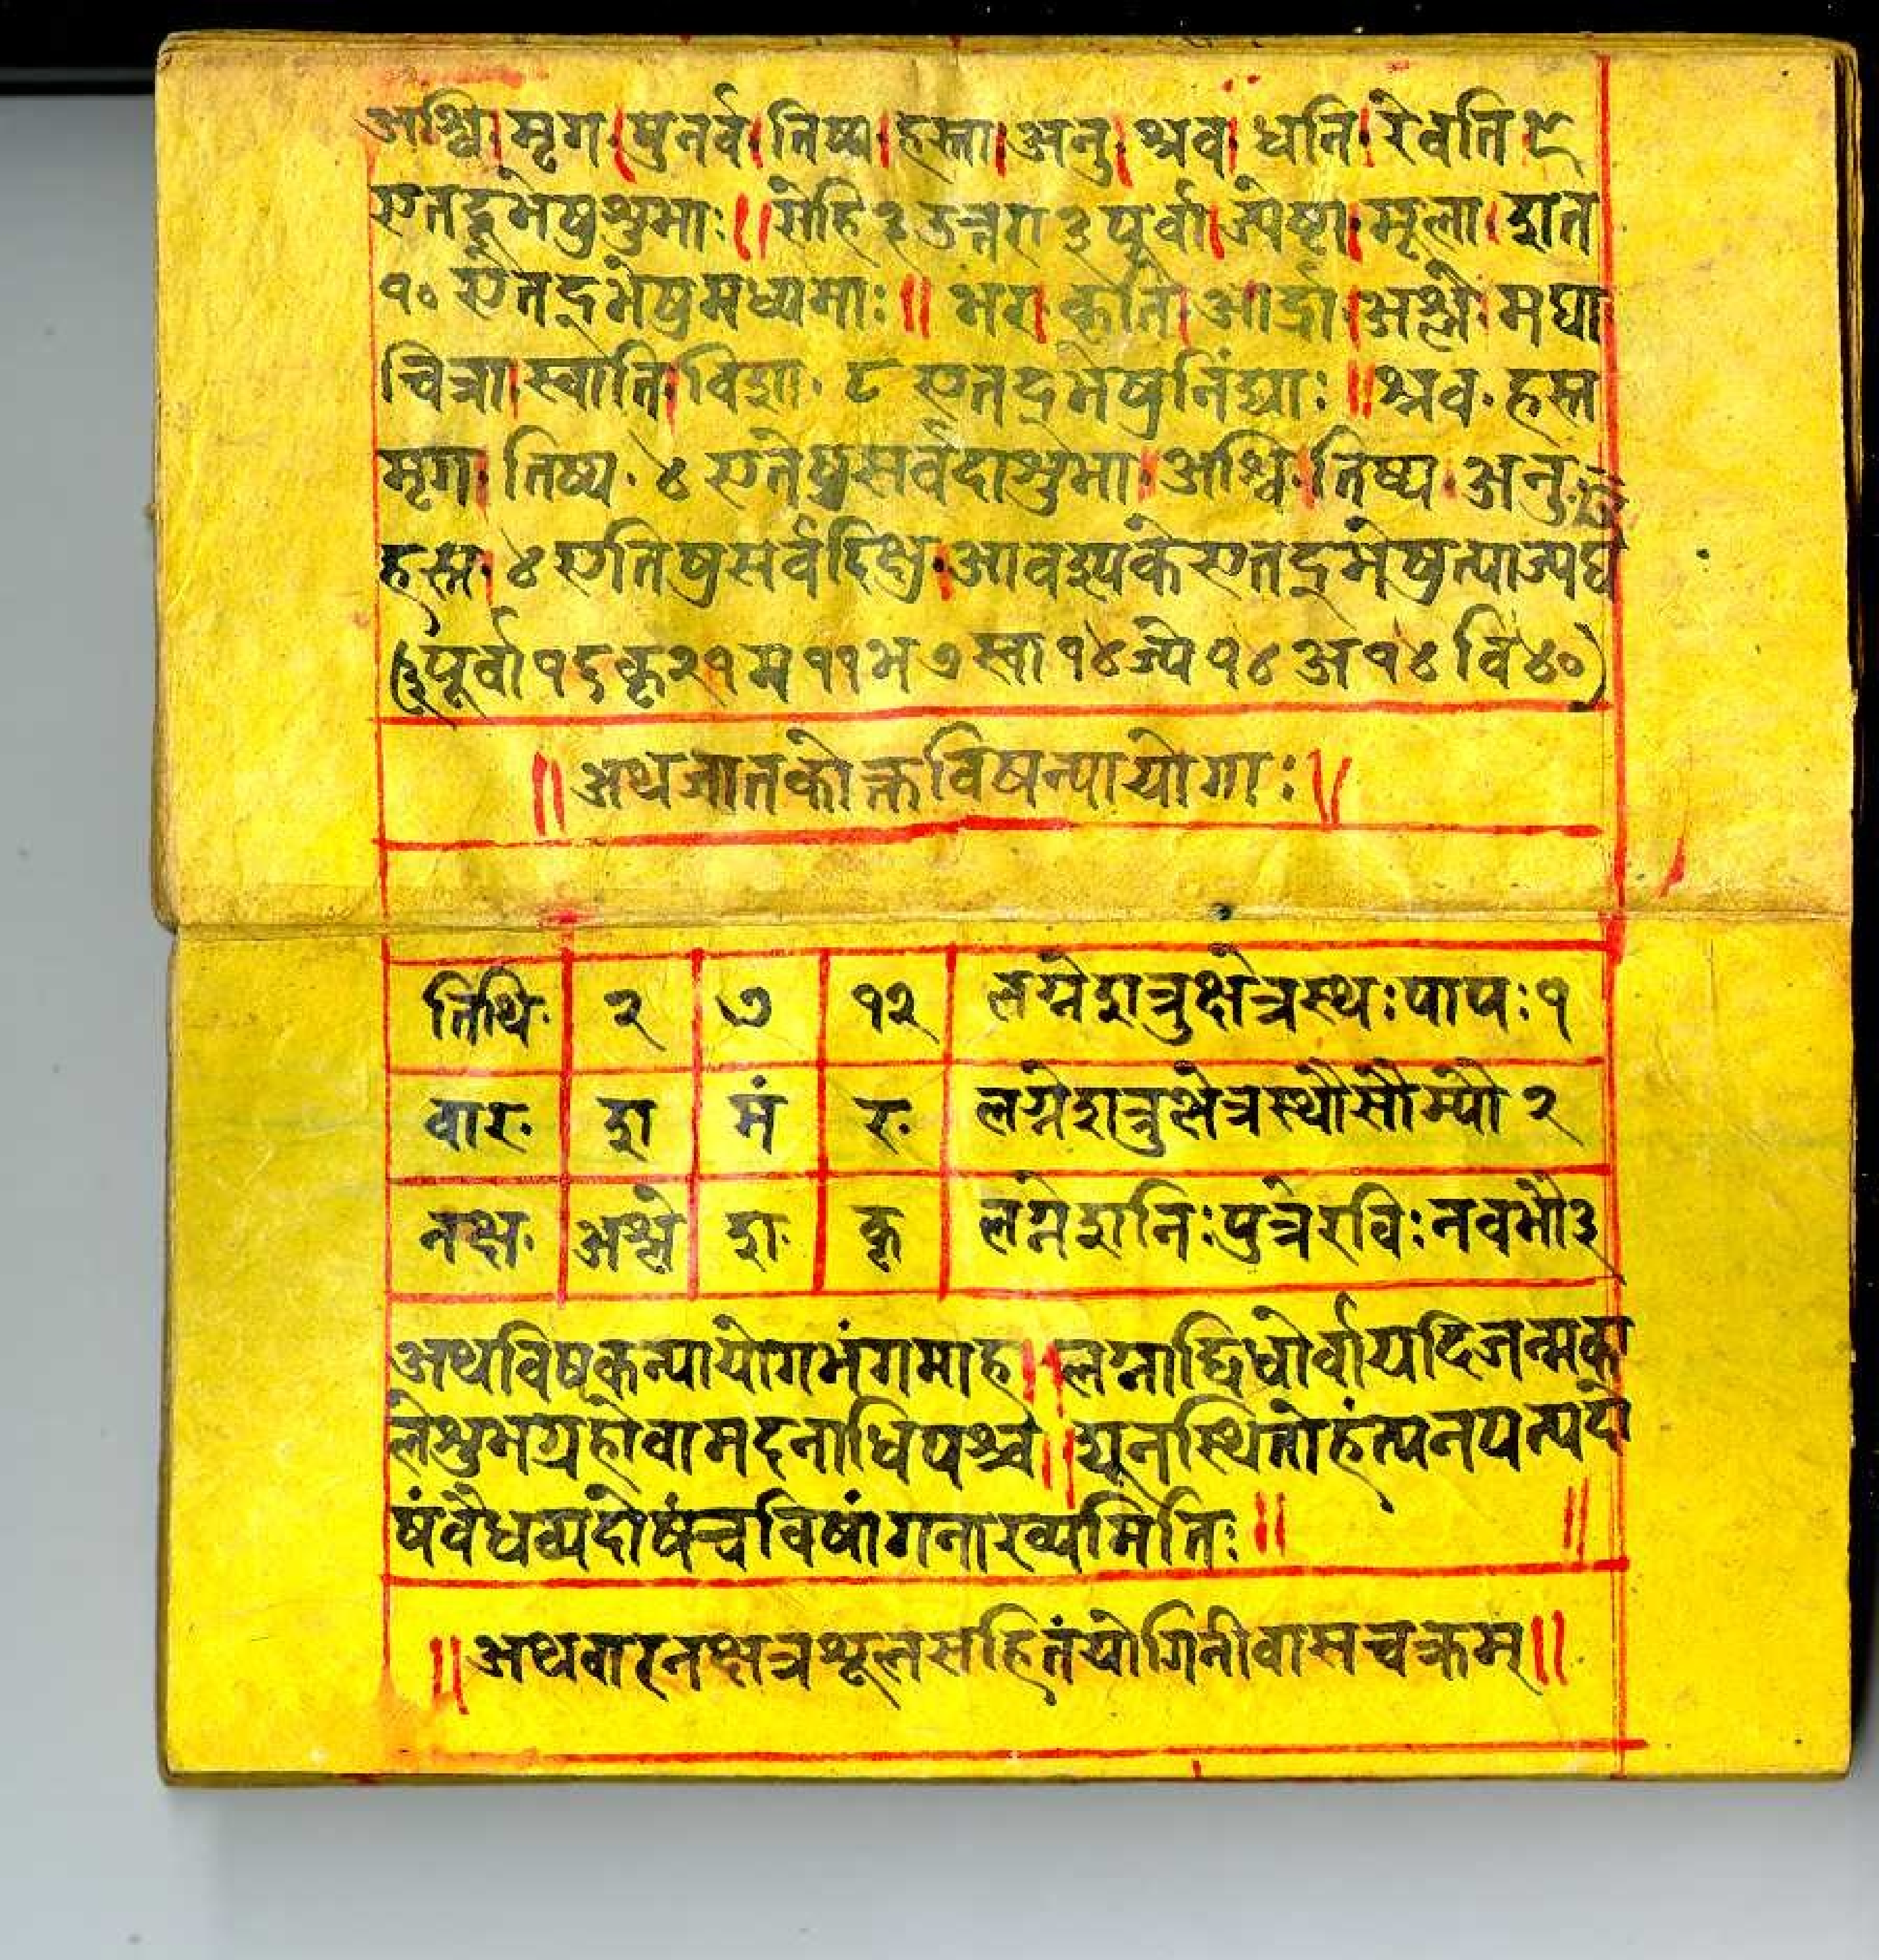 अश्वि। मृग। पुनर्व। तिष्य। हस्ता। अनु। श्रव। धनि। रेवति ९
एतद्भेषुशुभाः॥ रोहि ३ उत्तरा ३ पूर्वा। ज्येष्टा। मूला। शत
१० एतद्भेषुमध्यमाः॥ भर। कृति। आर्द्रा। अश्ले। मघा
चित्रा। स्वाति। विशा. ८ एतद्भेषुनिंद्याः॥ श्रव. हस्त
मृग। तिष्य. ४ एतेषुसर्वदाशुभा। अश्वि। तिष्य। अनु.
हस्त। ४ एतिषुसर्वदिक्षु। आवश्यकेएतद्भेषुत्याज्यघ
(३पूर्वा १६ कृ २१ म ११ भ ७ स्वा १४ ज्ये १४ अ १४ वि ४०)
॥ अथजातकोक्तविषन्यायोगाः॥
तिथि. २ ७ १२ लग्नेशत्रुक्षेत्रस्थःपापः१
वार. श मं र. लग्नेशत्रुक्षेत्रस्थौसौम्यौ २
नक्ष. अश्ले श. कृ लग्नेशनिःपुत्रेरविःनवभौ३
अथविषकन्यायोगभंगमाह॥ लग्नाद्विधोर्वायदिजन्मका
लेशुभग्रहोवामदनाधिपश्च॥ द्यूनस्थितोहंत्यनपत्यदो
षंवैधव्यदोषंचविषांगनाख्यमितिः॥ ॥
॥ अथवारनक्षत्रशूलसहितंयोगिनीवासचक्रम्॥